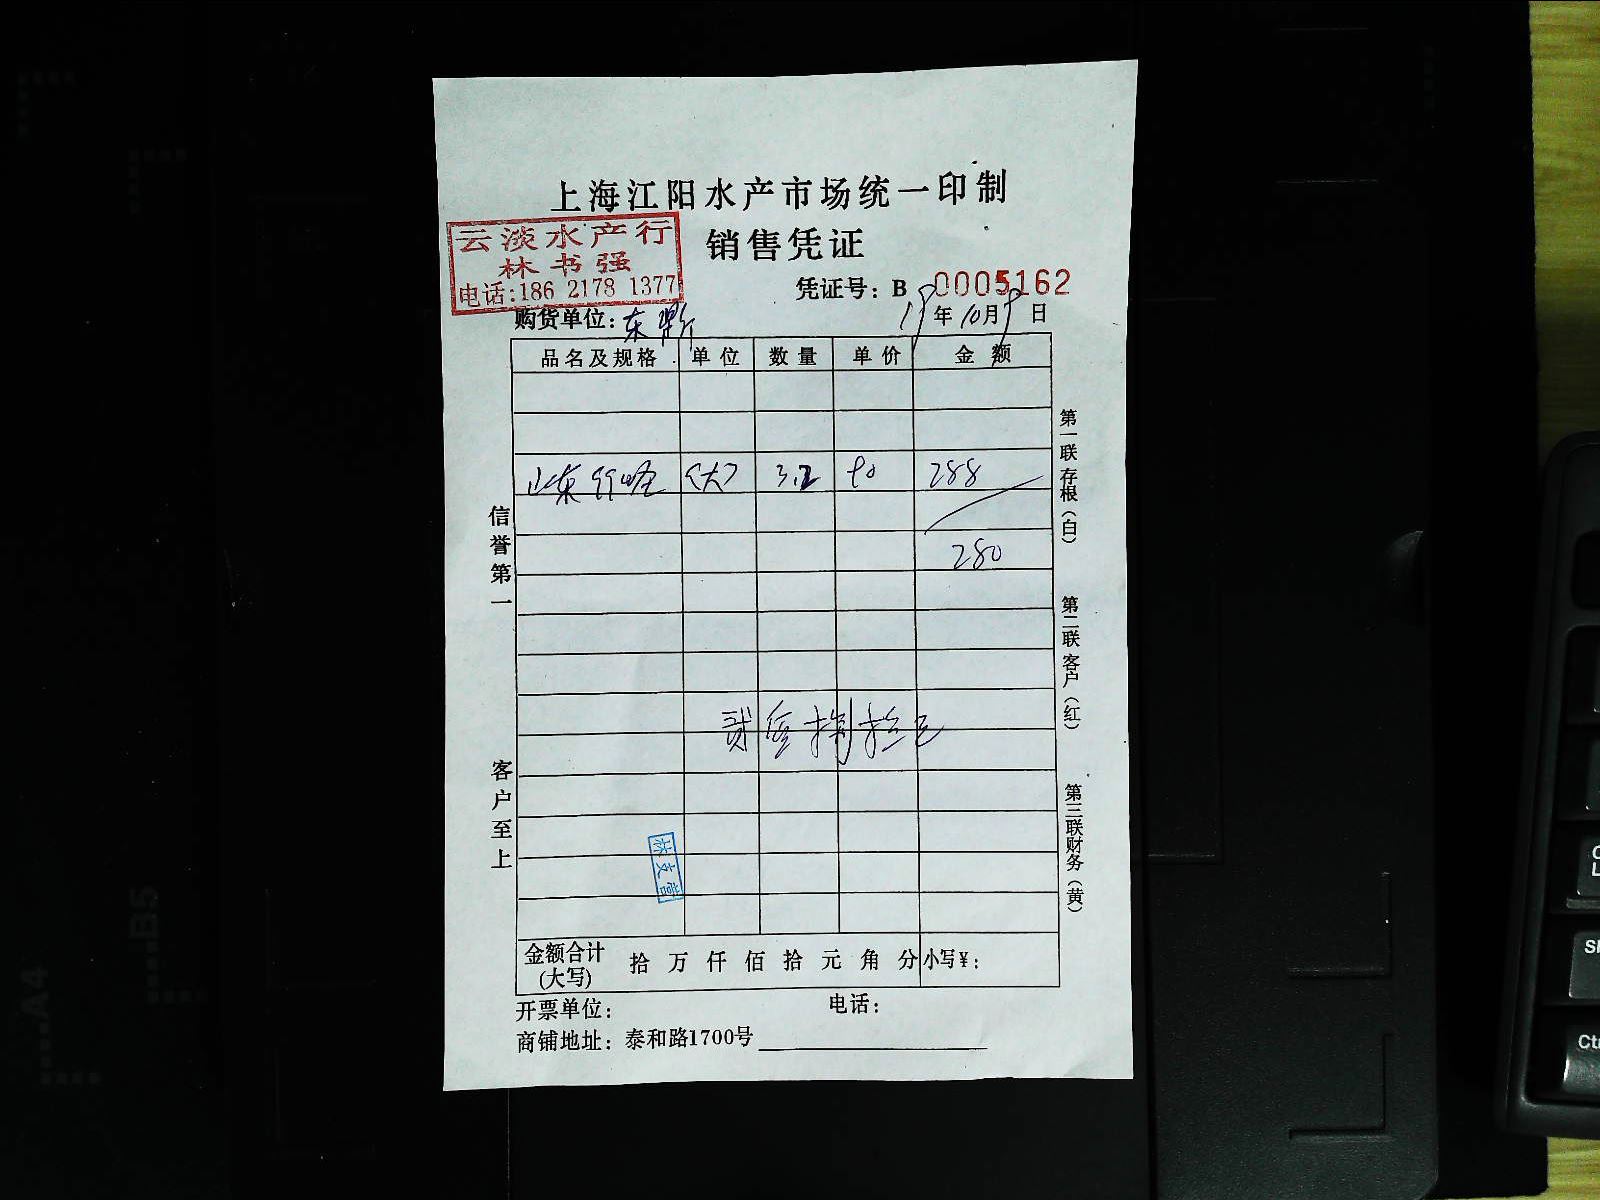 上海江阳水产市场统一印制
销售凭证
云淡水产行
林书强
电话:186 2178 1377
凭证号: B 0005162
购货单位: 东
19年10月9日
品名及规格 单位 数量 单价 金额
山东 (大) 3.2 90 288
280
贰佰捌拾元
信誉第一
客户至上
第一联存根(白)
第二联客户(红)
第三联财务(黄)
金额合计(大写) 拾 万 仟 佰 拾 元 角 分 小写¥:
开票单位: 电话:
商铺地址: 泰和路1700号